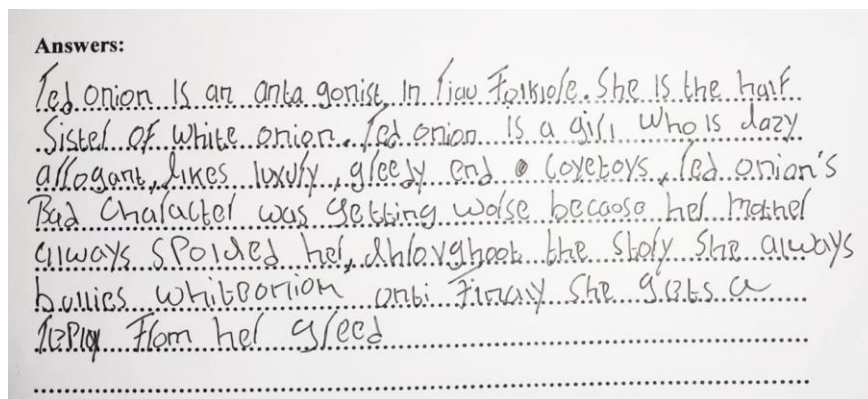 Answers:
Red onion is an anta gonist, in Riau Folklole. She Is the half
Sister of white onion. Red onion is a girl who is lazy
arrogant, likes luxury, greedy end covetoys, Red onion's
Bad Character was getting worse becaose her mother
always spoided her, throughoot the story she always
bullies whiteonion onti Finaly she gets a
reply From her greed